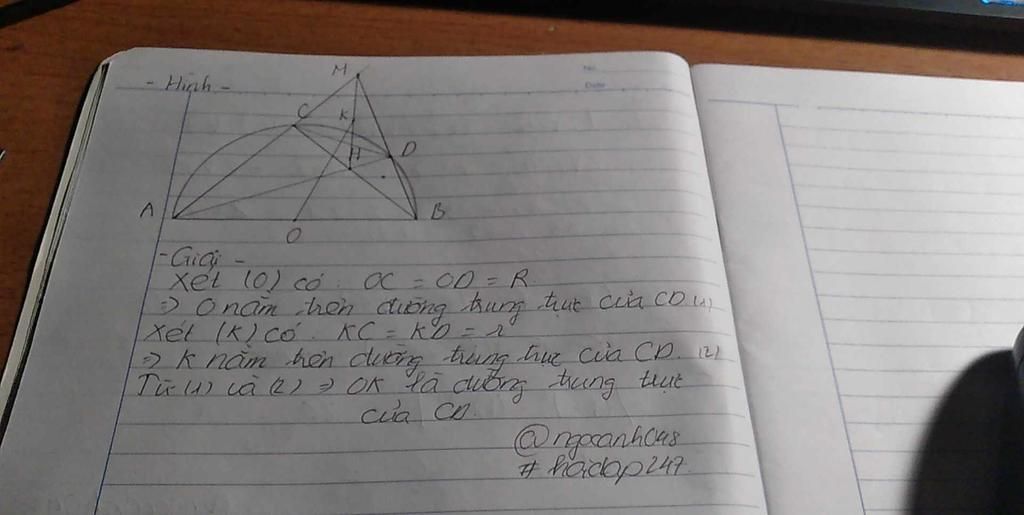 - Hình -
M
C
K
D
H
A
B
O
- Giải -
Xét (O) có: OC = OD = R
=> O nằm trên đường trung trực của CD. (1)
Xét (K) có: KC = KD = r
=> K nằm trên đường trung trực của CD. (2)
Từ (1) và (2) => OK là đường trung trực
của CD.
@ngocanh048
# hoidap247.